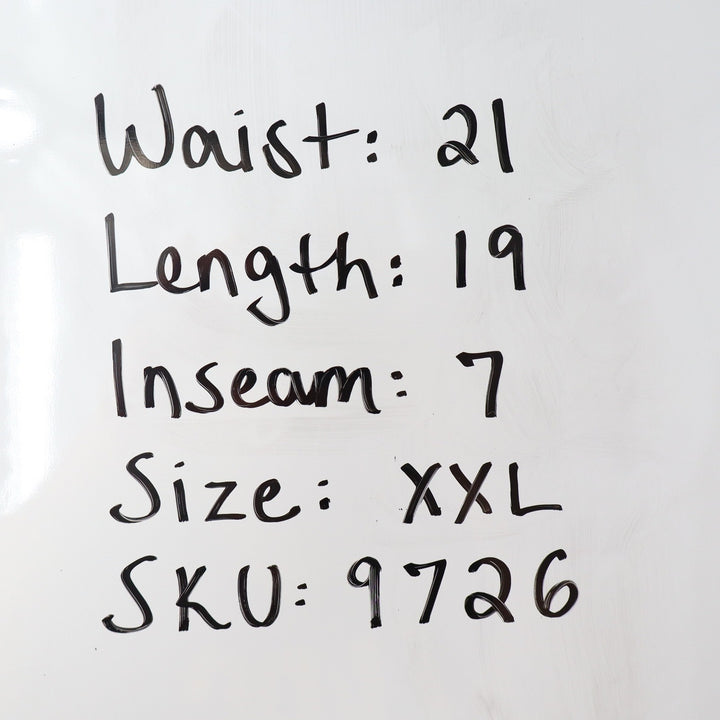 Waist: 21
Length: 19
Inseam: 7
Size: XXL
SKU: 9726